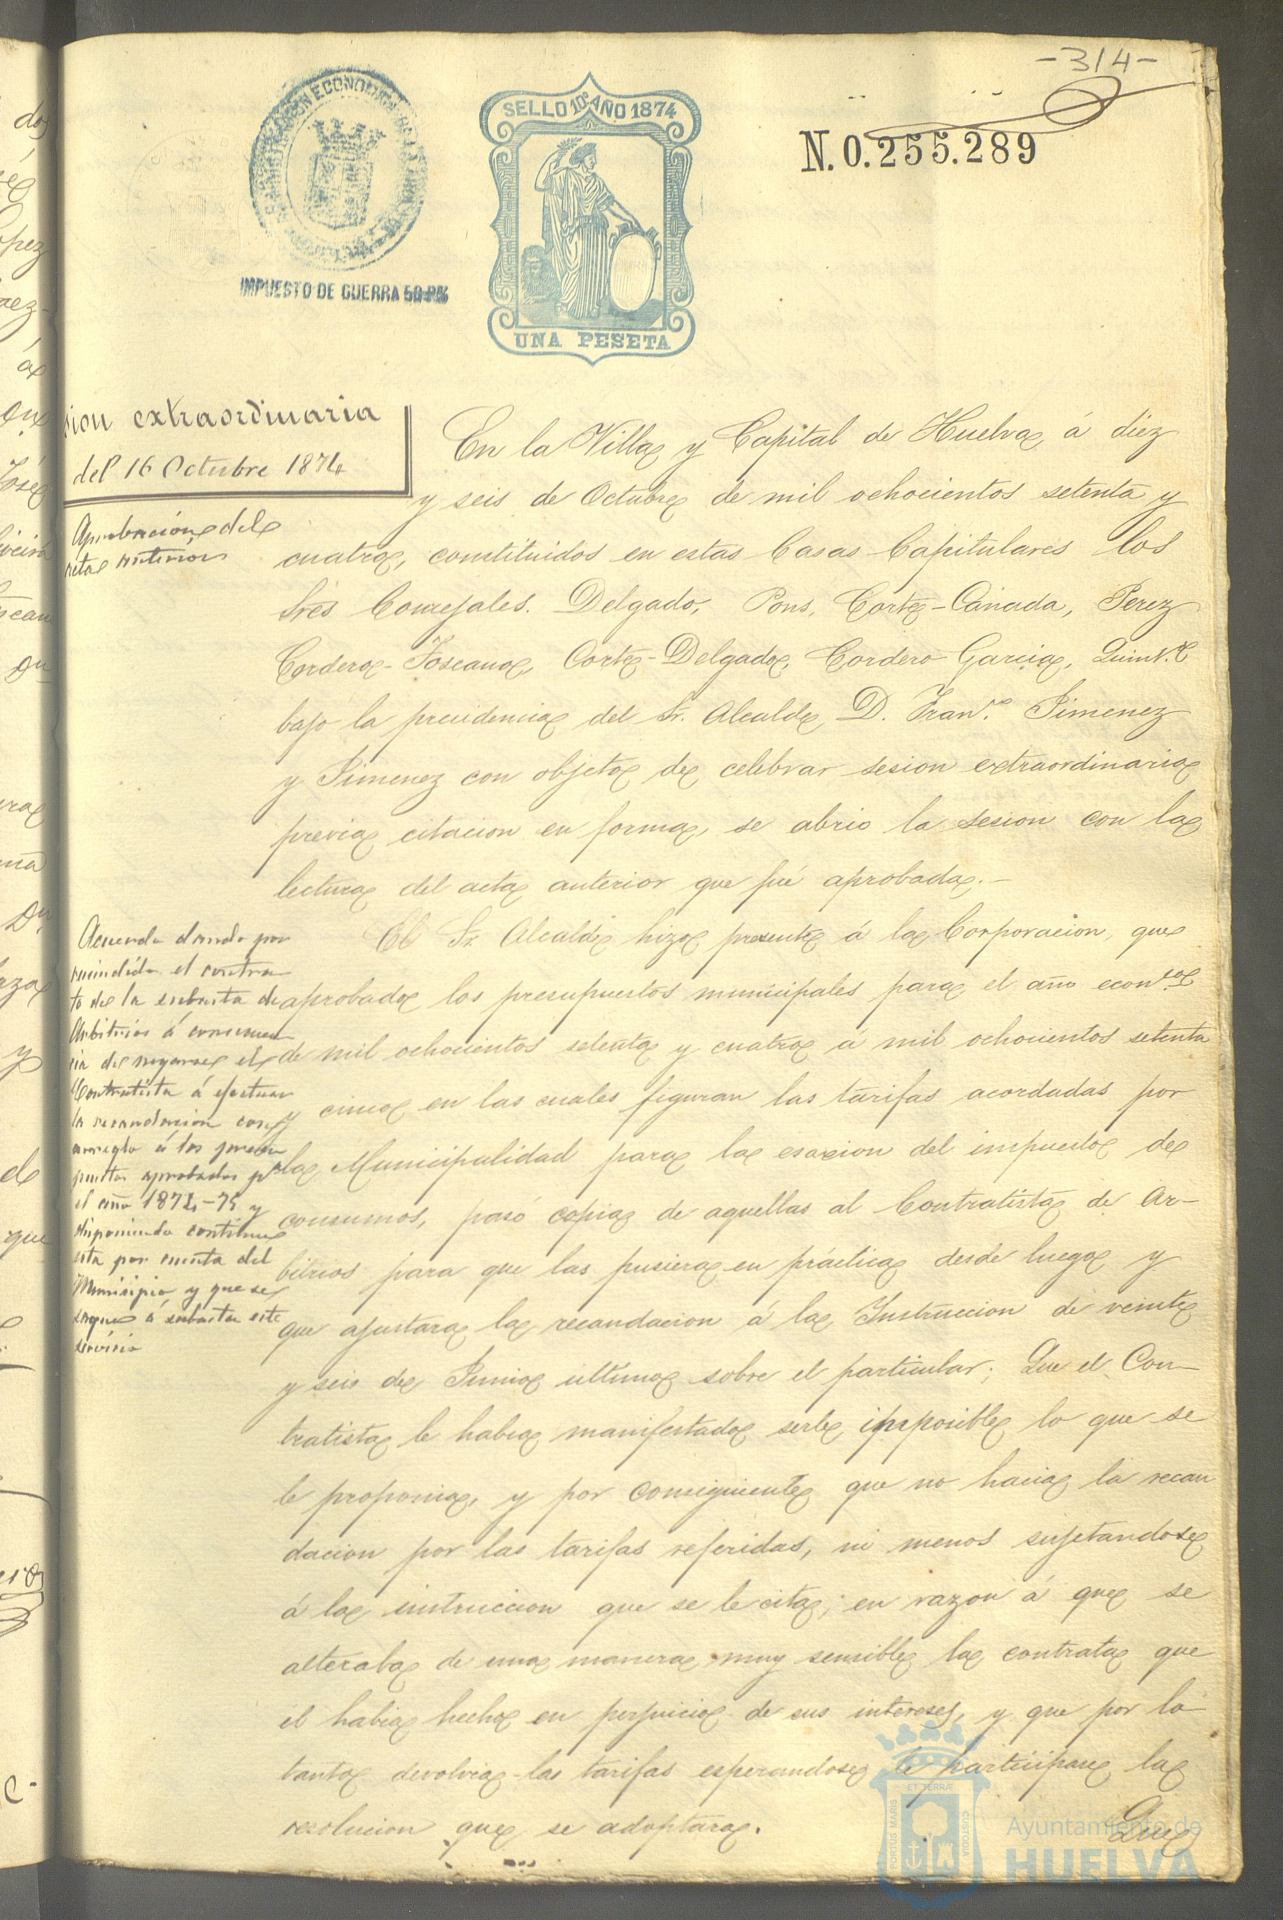 -314-
SELLO 10º AÑO 1874
N.0.255.289
IMPUESTO DE GUERRA 50
UNA PESETA
sion extraordinaria
del 16 Octubre 1874
Aprobacion del
acta anterior
En la Villa y Capital de Huelva á diez
y seis de Octubre de mil ochocientos setenta y
cuatro, constituidos en estas Casas Capitulares los
Sres Concejales. Delgado, Pons, Corte-Cañada, Perez
Cordero-Toscano, Corte-Delgado, Cordero Garcia, Quint.º
bajo la presidencia del Sr. Alcalde D. Fran.co Jimenez
y Jimenez con objeto de celebrar sesion extraordinaria
previa citacion en forma, se abrio la sesion con la
lectura del acta anterior que fué aprobada.-
Acuerdo dando por
rescindido el contra
to de la subasta de
Arbitrios á consecuen
cia de negarse el
Contratista á efectuar
la recaudacion con
arreglo á los presu
puestos aprobados pª
el año 1874-75 y
disponiendo continue
esta por cuenta del
Municipio y que se
saque á subasta este
servicio
El Sr. Alcalde hizo presente á la Corporacion, que
aprobado los presupuestos municipales para el año econ.co
de mil ochocientos setenta y cuatro á mil ochocientos setenta
y cinco en las cuales figuran las tarifas acordadas por
la Municipalidad para la esaccion del impuesto de
consumos, pasó copia de aquellas al Contratista de Ar-
bitrios para que las pusiera en práctica desde luego y
que ajustara la recaudacion á la Instruccion de veinte
y seis de Junio último sobre el particular; Que el Con-
tratista le habia manifestado serle imposible lo que se
le proponia, y por consiguiente que no hacia la recau
dacion por las tarifas referidas, ni menos sujetandose
á la instruccion que se le cita; en razon á que se
alteraba de una manera muy sensible la contrata que
él habia hecho en perjuicio de sus intereses, y que por lo
tanto devolvia las tarifas esperandose le participare la
resolucion que se adoptara.
Que
PORTUS MARIS ET TERRÆ CUSTODIA
Ayuntamiento de
HUELVA